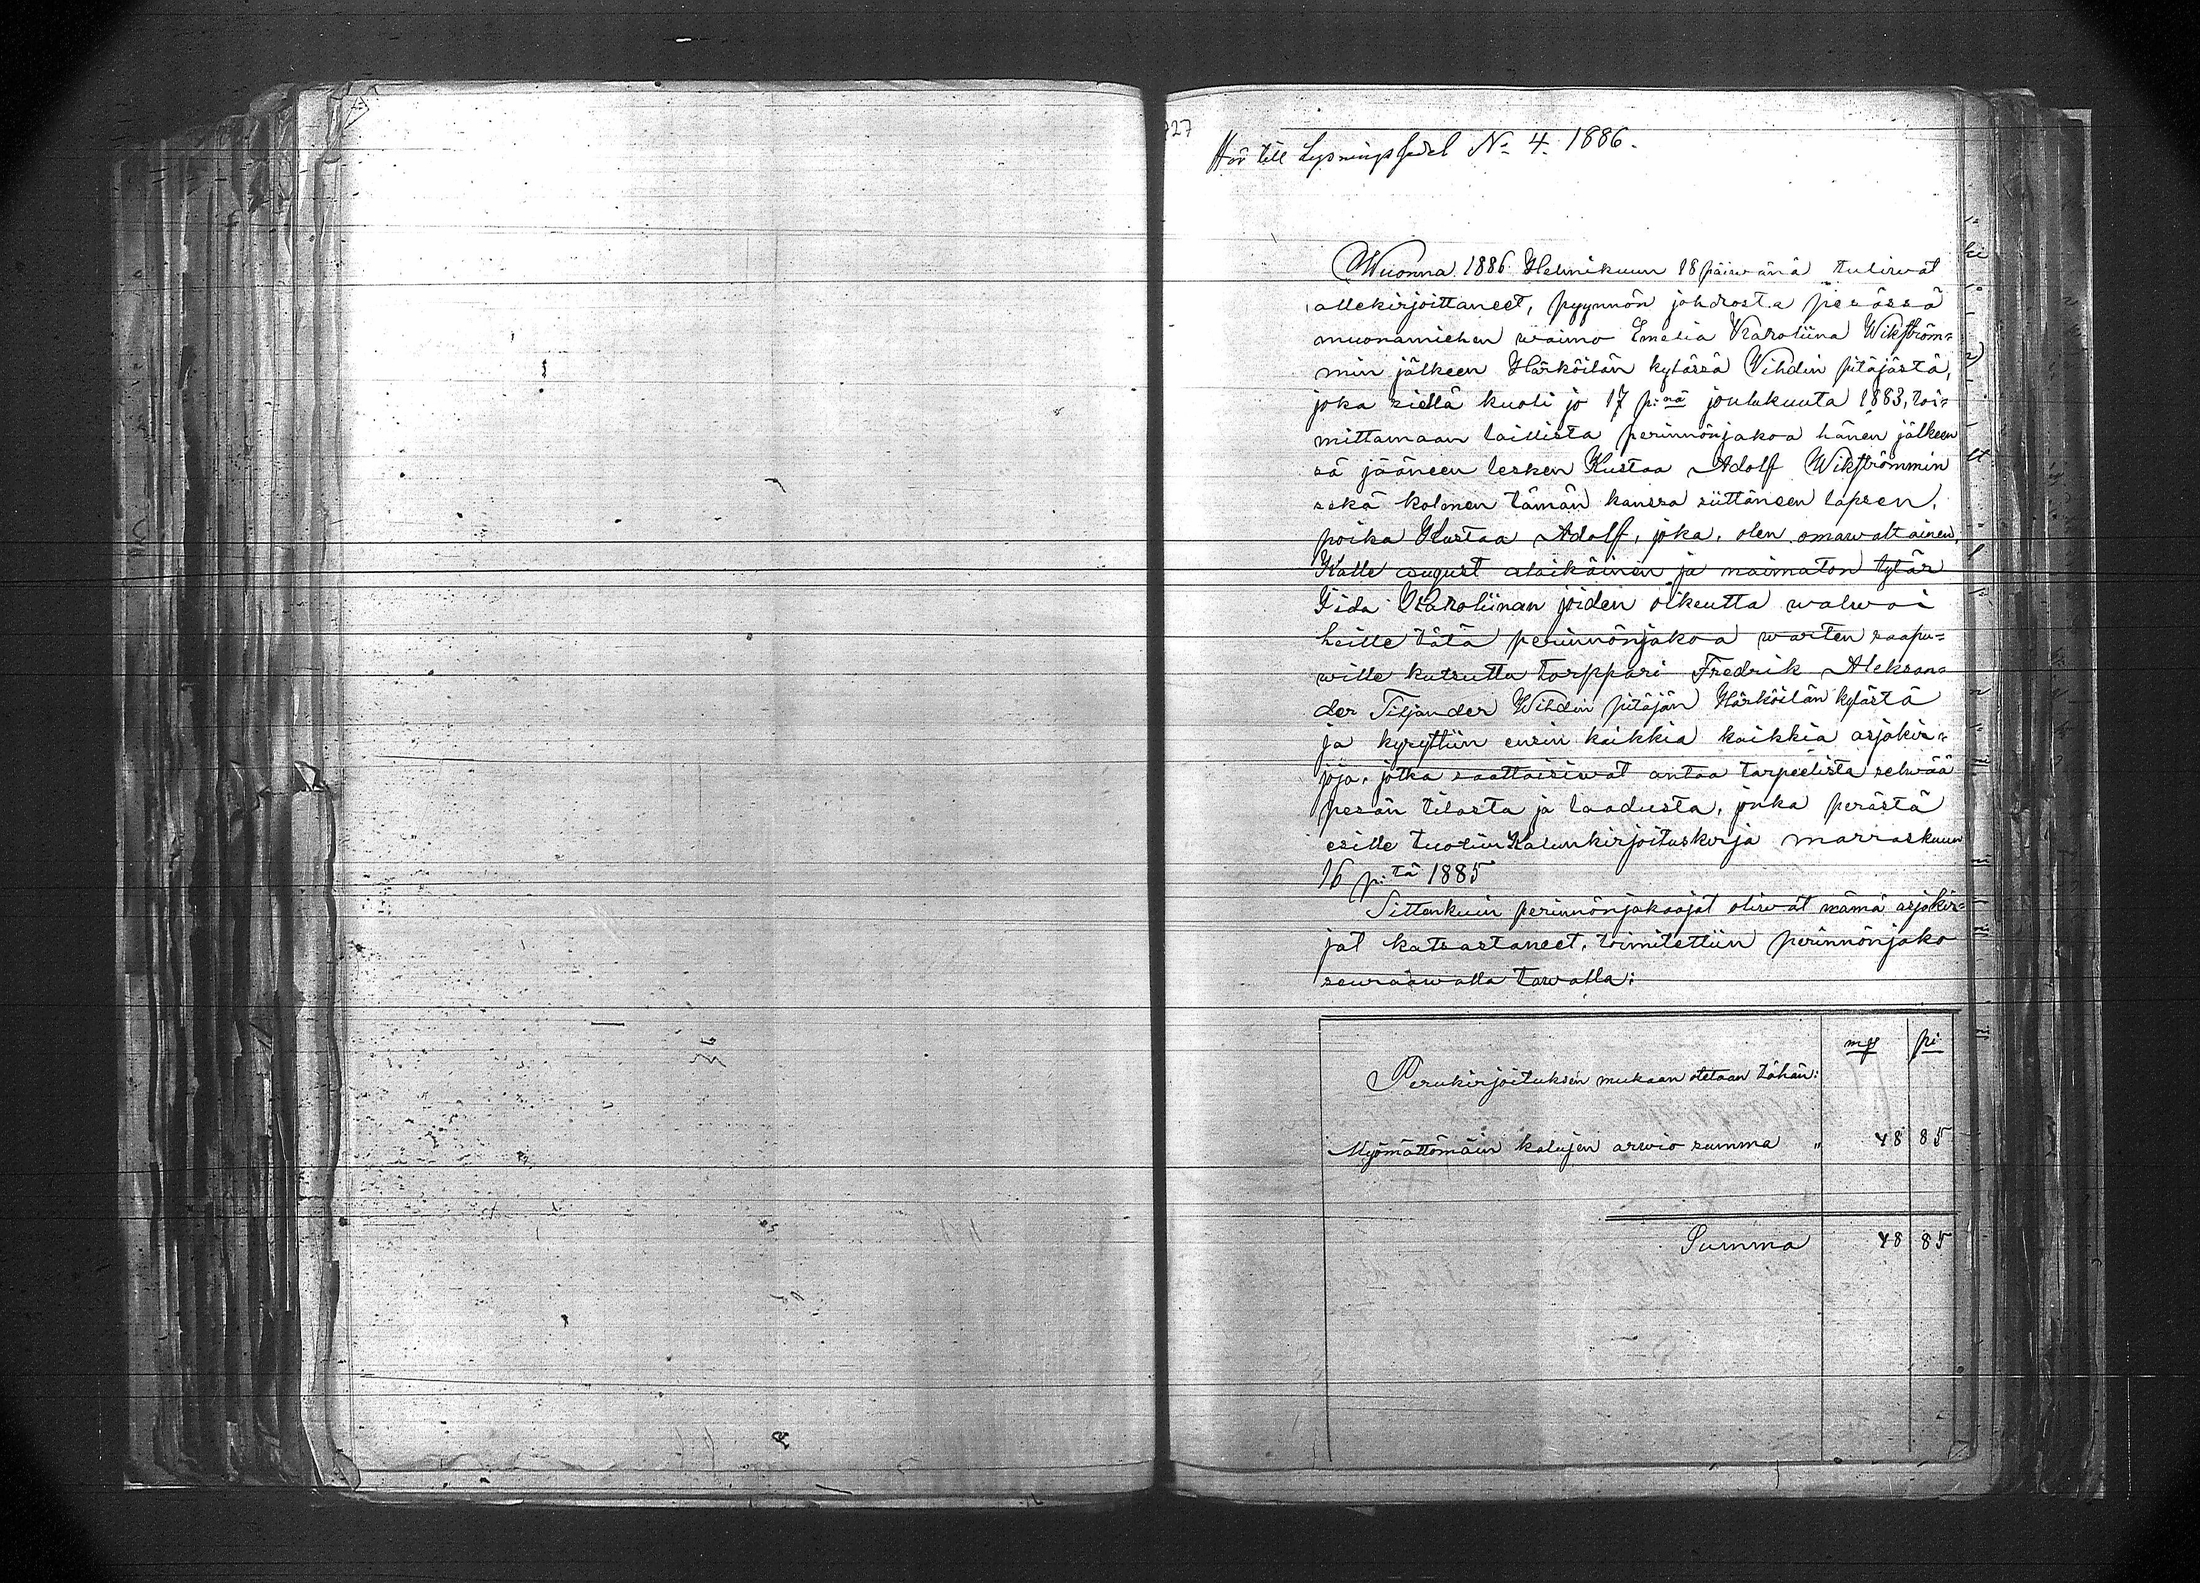 727
Hör till Lysningssedel No 4. 1886.
Wuonna 1886 Helmikuun 18 päiwänä tuliwat
allekirjoittaneet, pyynnön johdosta pesässä
muonamiehen waimo Emelia Karoliina Wikström=
min jälkeen Härköilän kylässä Vihdin pitäjästä,
joka siellä kuoli jo 17 p:nä joulukuuta 1883, toi=
mittamaan laillista perinnönjakoa hänen jälkeen
sä jääneen lesken Kustaa Adolf Wikströmmin
sekä kolmen tämän kanssa siittäneen lapsen,
poika Kustaa Adolf, joka, olen omawaltainen,
Kalle august alaikäinen ja naimaton tytär
Iida Karoliinan joiden oikeutta walwoi
heille tätä perinnönjakoa warten saapu=
wille kutsuttu torppari Fredrik Aleksan=
der Tiljander Wihdin pitäjän Härköilän kylästä
ja kysyttiin ensin kaikkia kaikkia asjakir=
joja, jotka saattaisiwat antaa tarpeelista selwää
pesän tilasta ja laadusta, jonka perästä
esille tuotiin Kalunkirjoituskirja marraskuun
16 p:tä 1885
Sittenkuin perinnönjakaajat oliwat nämä asjakir=
jat katsastaneet, toimitettiin perinnönjako
seuraawalla tawalla:
mp pi
Perukirjoituksen mukaan otetaan tähän:
Myömättömäin kalujen arwio summa " 48 85
Summa 48 85